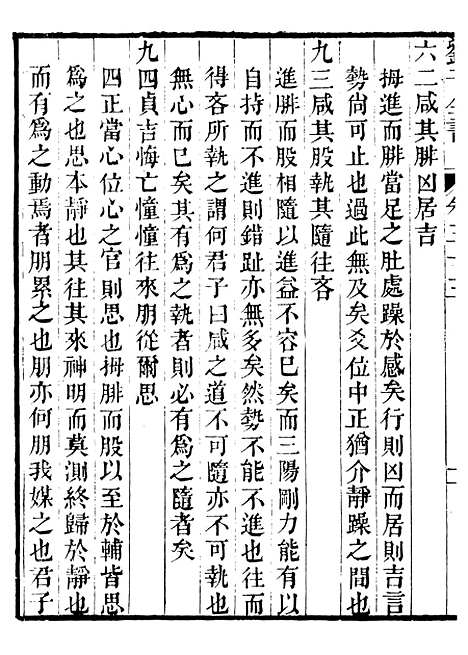 六二咸其腓凶居吉
拇進而腓當足之肚處躁於感矣行則凶而居則吉言
勢尙可止也過此無及矣爻位中正猶介靜躁之間也
九三咸其股執其隨往吝
進腓而股相隨以進益不容已矣而三陽剛力能有以
自持而不進則錯趾亦無多矣然勢不能不進也往而
得吝所執之謂何君子曰咸之道不可隨亦不可執也
無心而已矣其有爲之執者則必有爲之隨者矣
九四貞吉悔亡憧憧往來朋從爾思
四正當心位心之官則思也拇腓而股以至於輔皆思
爲之也思本靜也其往其來神明而莫測終歸於靜也
而有爲之動焉者朋累之也朋亦何朋我媒之也君子